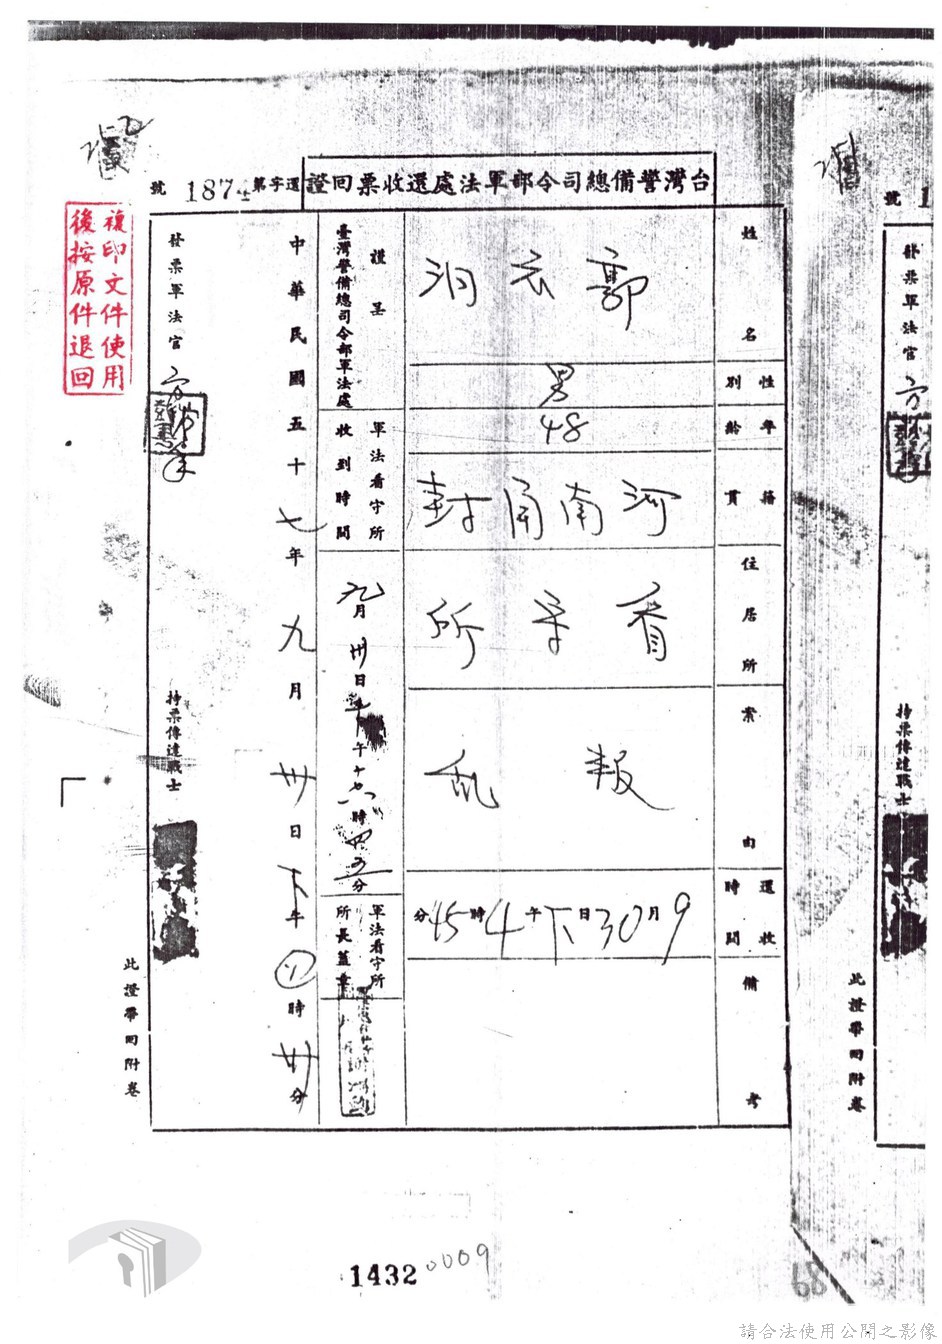 台灣警備總司令部軍法處還收票回證
還字第1874號
姓名
郭衣洞
性別
男
年齡
48
籍貫
河南開封
住居所
看守所
案由
叛亂
還收時間
9月30日下午4時45分
備考
謹呈
臺灣警備總司令部軍法處
軍法看守所
收到時間
九月卅日
午十六時四五分
軍法看守所
所長蓋章
中華民國五十七年九月卅日下午四時卅分
發票軍法官
持票傳達戰士
此證帶回附卷
複印文件使用
後按原件退回
號1
發票軍法官
持票傳達戰士
此證帶回附卷
1432
0009
68
請合法使用公開之影像